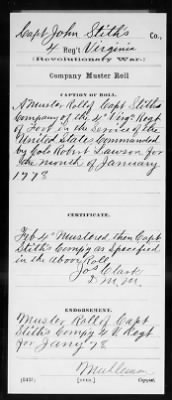 Capt. John Stith's Co.,
4 Reg't Virginia
(Revolutionary War.)
Company Muster Roll
CAPTION OF ROLL.
A Muster Roll of Capt Stith's
Company of the 4th Virga Regt
of Foot in the Service of the
United States Commanded
by Colo Robert Lawson for
the month of January
1778
CERTIFICATE.
Feby 4th Mustered then Capt
Stith's Compy as Specified
in the above Roll
Jos Clark
D M M
ENDORSEMENT.
Muster Roll of Capt
Stith's Compy 4 V Regt
for Jany 78
Copyist.